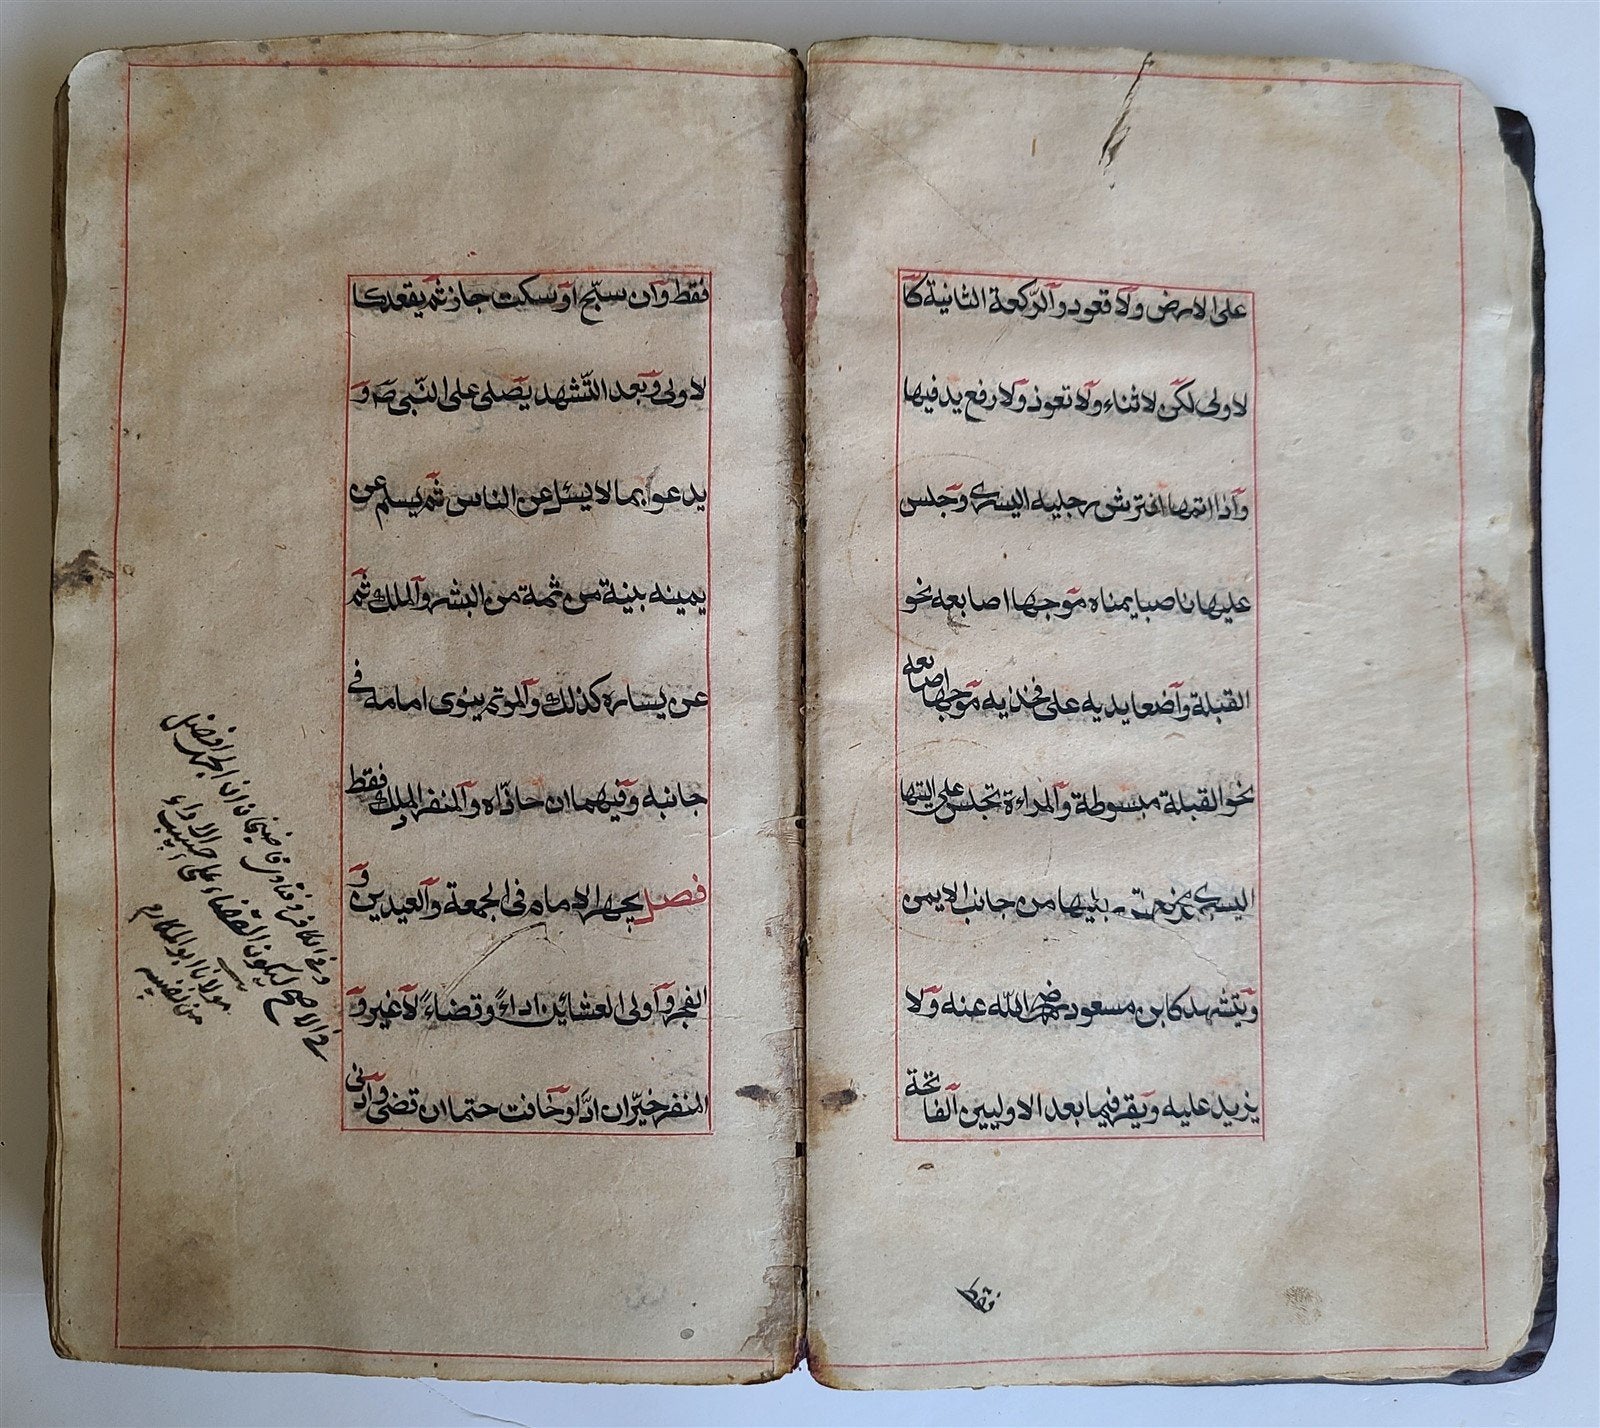 على الارض ولا قعود والركعة الثانية كا
لاولى لكن لا ثناء ولا تعوذ ولا رفع يد فيها
واذا اتمها افترش رجليه اليسرى وجلس
عليها ناصبا يمناه موجها اصابعه نحو
القبلة واضعا يديه على فخذيه موجها اصابعه
نحو القبلة مبسوطة والمراءة تجلس على اليتها
اليسرى من جانب الايمن
ويتشهد كابن مسعود رضى الله عنه ولا
يزيد عليه ويقر فيما بعد الاوليين الفاتحة
فقط
فقط وان سبّح او سكت جاز ثم يقعد كا
لاولى وبعد التّشهد يصلى على النّبى صم و
يدعوا بما لا يسئل عن الناس ثم يسلم عن
يمينه بنية من ثمة من البشر والملك ثم
عن يساره كذلك والموتم ينوى امامه فى
جانبه وفيهما ان حاذاه والمنفرد الملك فقط
فصل يجهر الامام فى الجمعة والعيدين و
الفجر واولى العشائين اداءً وقضاءً لا غير و
المنفر خيّر ان ادّا وخافت حتما ان قضى وادنى
وفى الكافى وفتاوى قاضيخان ان الجهر افضل
فى الاصح ليكون القضاء على حسب الاداء
مولانا ابو المكارم